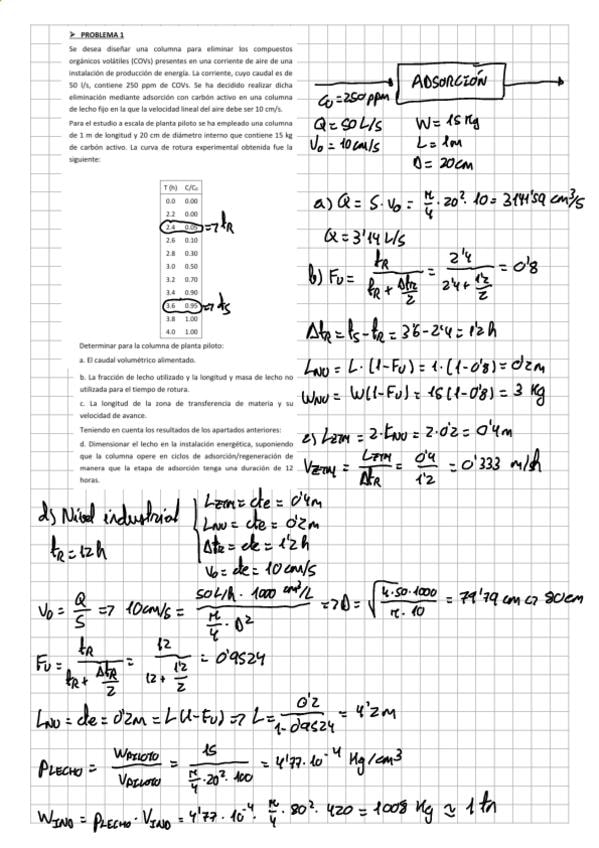 ➢ PROBLEMA 1
Se desea diseñar una columna para eliminar los compuestos
orgánicos volátiles (COVs) presentes en una corriente de aire de una
instalación de producción de energía. La corriente, cuyo caudal es de
50 l/s, contiene 250 ppm de COVs. Se ha decidido realizar dicha
eliminación mediante adsorción con carbón activo en una columna
de lecho fijo en la que la velocidad lineal del aire debe ser 10 cm/s.
Para el estudio a escala de planta piloto se ha empleado una columna
de 1 m de longitud y 20 cm de diámetro interno que contiene 15 kg
de carbón activo. La curva de rotura experimental obtenida fue la
siguiente:
T (h) C/C₀
0.0 0.00
2.2 0.00
2.4 0.05 => tR
2.6 0.10
2.8 0.30
3.0 0.50
3.2 0.70
3.4 0.90
3.6 0.95 => ts
3.8 1.00
4.0 1.00
Determinar para la columna de planta piloto:
a. El caudal volumétrico alimentado.
b. La fracción de lecho utilizado y la longitud y masa de lecho no
utilizada para el tiempo de rotura.
c. La longitud de la zona de transferencia de materia y su
velocidad de avance.
Teniendo en cuenta los resultados de los apartados anteriores:
d. Dimensionar el lecho en la instalación energética, suponiendo
que la columna opere en ciclos de adsorción/regeneración de
manera que la etapa de adsorción tenga una duración de 12
horas.
ADSORCIÓN
C₀=250ppm
Q=50L/s W=15Kg
V₀=10cm/s L=1m
D=20cm
a) Q = S·V₀ = π/4·20²·10 = 3141'59 cm³/s
Q=3'14 L/s
b) FU = tR/(tR + ΔtR/2) = 2'4/(2'4 + 1'2/2) = 0'8
ΔtR = ts - tR = 3'6-2'4 = 1'2 h
LNU = L·(1-FU) = 1·(1-0'8) = 0'2m
WNU = W(1-FU) = 15(1-0'8) = 3 Kg
c) LZTM = 2·LNU = 2·0'2 = 0'4m
VZTM = LZTM/ΔtR = 0'4/1'2 = 0'333 m/h
d) Nivel industrial
tR=12h
LZTM = cte = 0'4m
LNU = cte = 0'2m
ΔtR = cte = 1'2h
V₀ = cte = 10cm/s
V₀ = Q/S => 10cm/s = (50L/h·1000 cm³/L)/(π/4·D²) => D = √(4·50·1000/(π·10)) = 79'79 cm ≃ 80cm
FU = tR/(tR + ΔtR/2) = 12/(12 + 1'2/2) = 0'9524
LNU = cte = 0'2m = L(1-FU) => L = 0'2/(1-0'9524) = 4'2m
ρLECHO = WPILOTO/VPILOTO = 15/(π/4·20²·100) = 4'77·10⁻⁴ Kg/cm³
WIND = ρLECHO·VIND = 4'77·10⁻⁴·π/4·80²·420 = 1008 Kg ≃ 1 tn